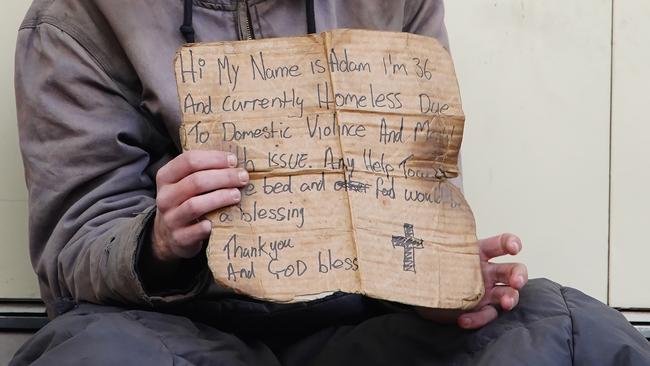 Hi My Name is Adam I'm 36
And currently Homeless Due
To Domestic Violince And
ISSUE. Any Help
bed and would
a blessing
Thankyou
And GOD bless